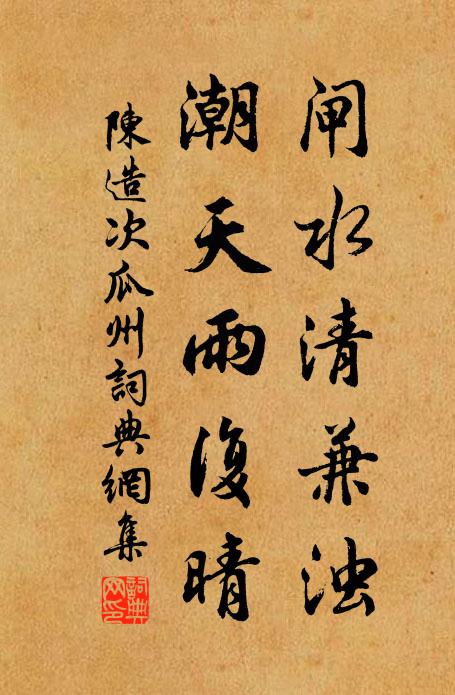 闸水清兼浊
潮天雨復晴
陳造次瓜州詞典網集
詞典网印